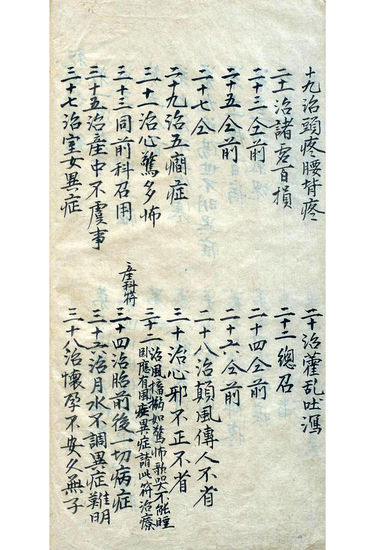 十九治頭疼腰背疼
二十治藿乱吐瀉
二十一治諸虛百損
二十二總召
二十三仝前
二十四仝前
二十五仝前
二十六仝前
二十七仝
二十八治顛風傳人不省
二十九治五癇症
三十治心邪不正不省
三十一治心驚多怖
三十二治風 病如驚怖歌哭不能睡
臥應有風疾異症請此符治療
三十三同前科召用
產科符
三十四治胎前後一切病症
三十五治產中不虞事
三十六治月水不調異症難明
三十七治室女異症
三十八治懷孕不安久無子